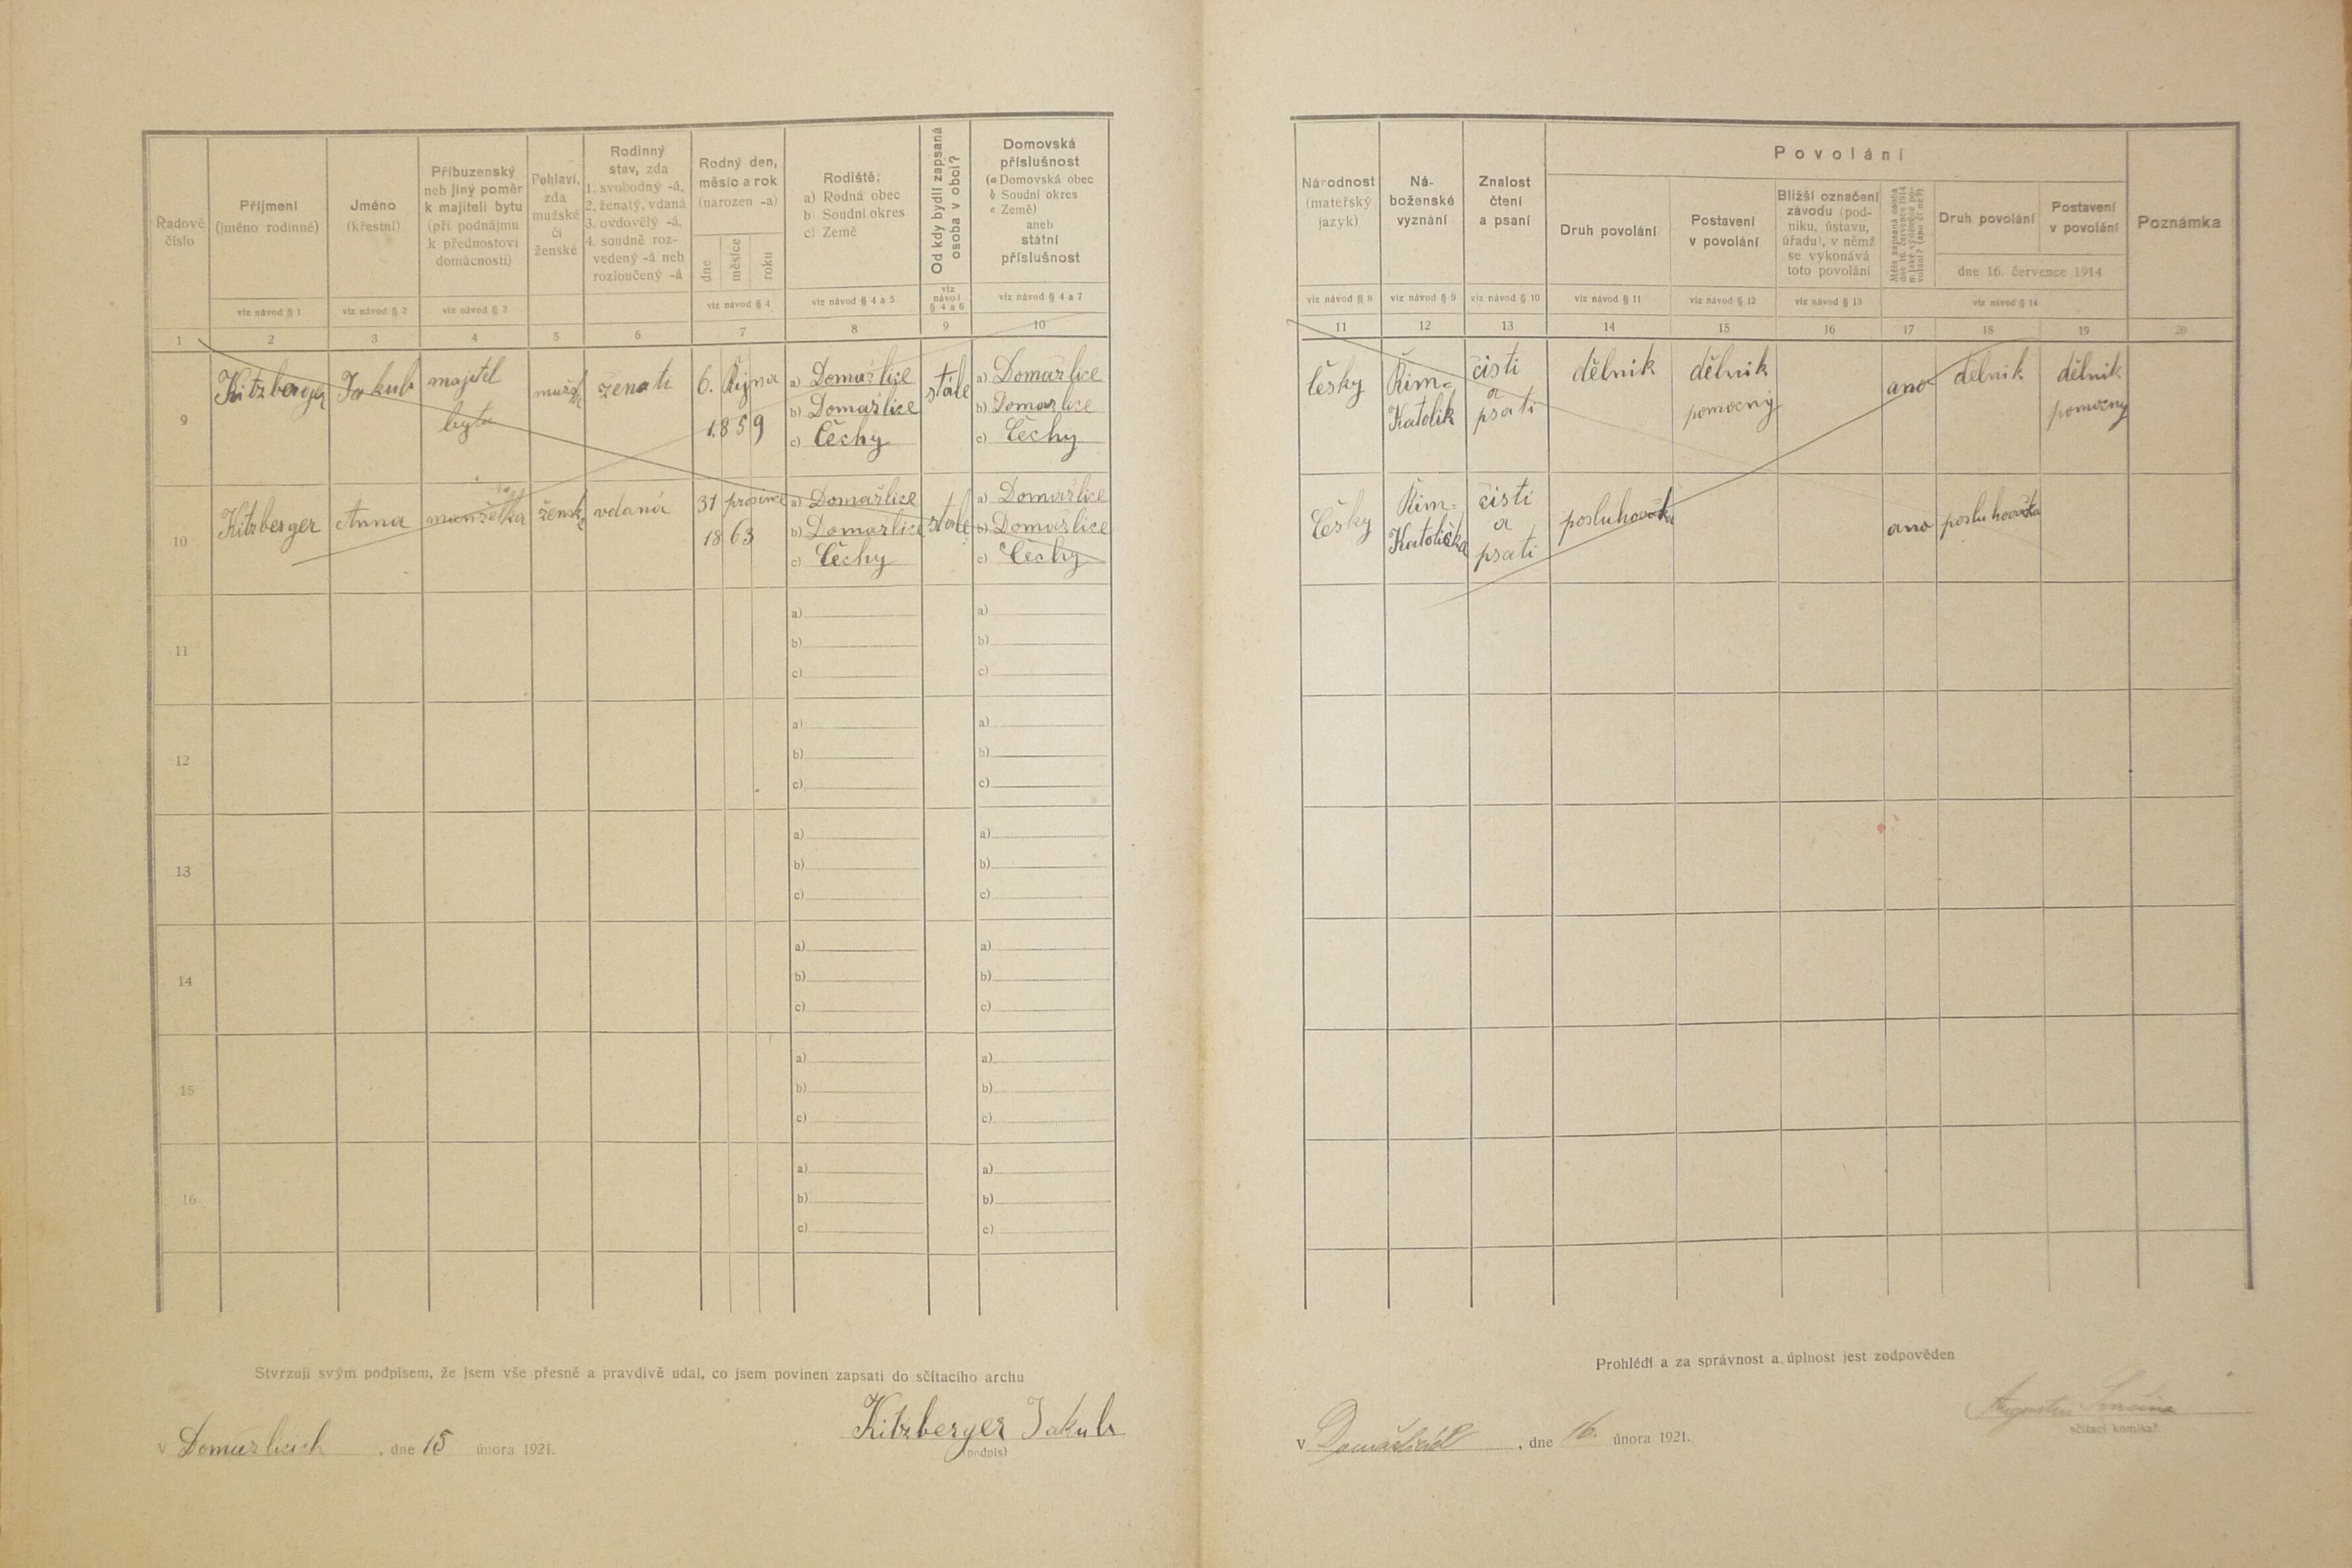 Řadové
číslo
Příjmení
(jméno rodinné)
viz návod § 1
Jméno
(křestní)
viz návod § 2
Příbuzenský
neb jiný poměr
k majiteli bytu
(při podnájmu
k přednostovi
domácnosti)
viz návod § 3
Pohlaví,
zda
mužské
či
ženské
Rodinný
stav, zda
1. svobodný -á,
2. ženatý, vdaná
3. ovdovělý -á,
4. soudně roz-
vedený -á neb
rozloučený -á
Rodný den,
měsíc a rok
(narozen -a)
dne
měsíce
roku
viz návod § 4
Rodiště:
a) Rodná obec
b) Soudní okres
c) Země
viz návod § 4 a 5
Od kdy bydlí zapsaná
osoba v obci?
viz
návod
§ 4 a 6
Domovská
příslušnost
(a Domovská obec
b Soudní okres
c Země)
aneb
státní
příslušnost
viz návod § 4 a 7
1 2 3 4 5 6 7 8 9 10
9
Kitzberger
Jakub
majitel
bytu
ženatí
6. Října
1859
a) Domažlice
b) Domažlice
c) Čechy
stále
a) Domažlice
b) Domažlice
c) Čechy
10
Kitzberger
Anna
manželka
žensk
vdaná
31 prosince
1863
a) Domažlice
b) Domažlice
c) Čechy
stále
a) Domažlice
b) Domažlice
c) Čechy
11
a) a)
b) b)
c) c)
12
a) a)
b) b)
c) c)
13
a) a)
b) b)
c) c)
14
a) a)
b) b)
c) c)
15
a) a)
b) b)
c) c)
16
a) a)
b) b)
c) c)
Stvrzuji svým podpisem, že jsem vše přesně a pravdivě udal, co jsem povinen zapsati do sčítacího archu
Kitzberger Jakub
(podpis)
V Domažlicích, dne 15 února 1921.
Národnost
(mateřský
jazyk)
viz návod § 8
Ná-
boženské
vyznání
viz návod § 9
Znalost
čtení
a psaní
viz návod § 10
Povolání
Druh povolání
viz návod § 11
Postavení
v povolání
viz návod § 12
Bližší označení
závodu (pod-
niku, ústavu,
úřadu), v němž
se vykonává
toto povolání
viz návod § 13
Měla zapsaná osoba
dne 16. července 1914
nějaké výdělečné po-
volání? (ano či ne?)
Druh povolání
Postavení
v povolání
dne 16. července 1914
viz návod § 14
Poznámka
11 12 13 14 15 16 17 18 19 20
česky
Řim-
Katolik
čisti
a
psati
dělnik
dělnik
pomocný
ano
dělnik
dělnik
pomocný
Česky
Řim-
Katolička
čisti
a
psati
posluhovačka
ano
posluhovačka
Prohlédl a za správnost a úplnost jest zodpověden
sčítací komisař.
V Domažlicích, dne 16. února 1921.